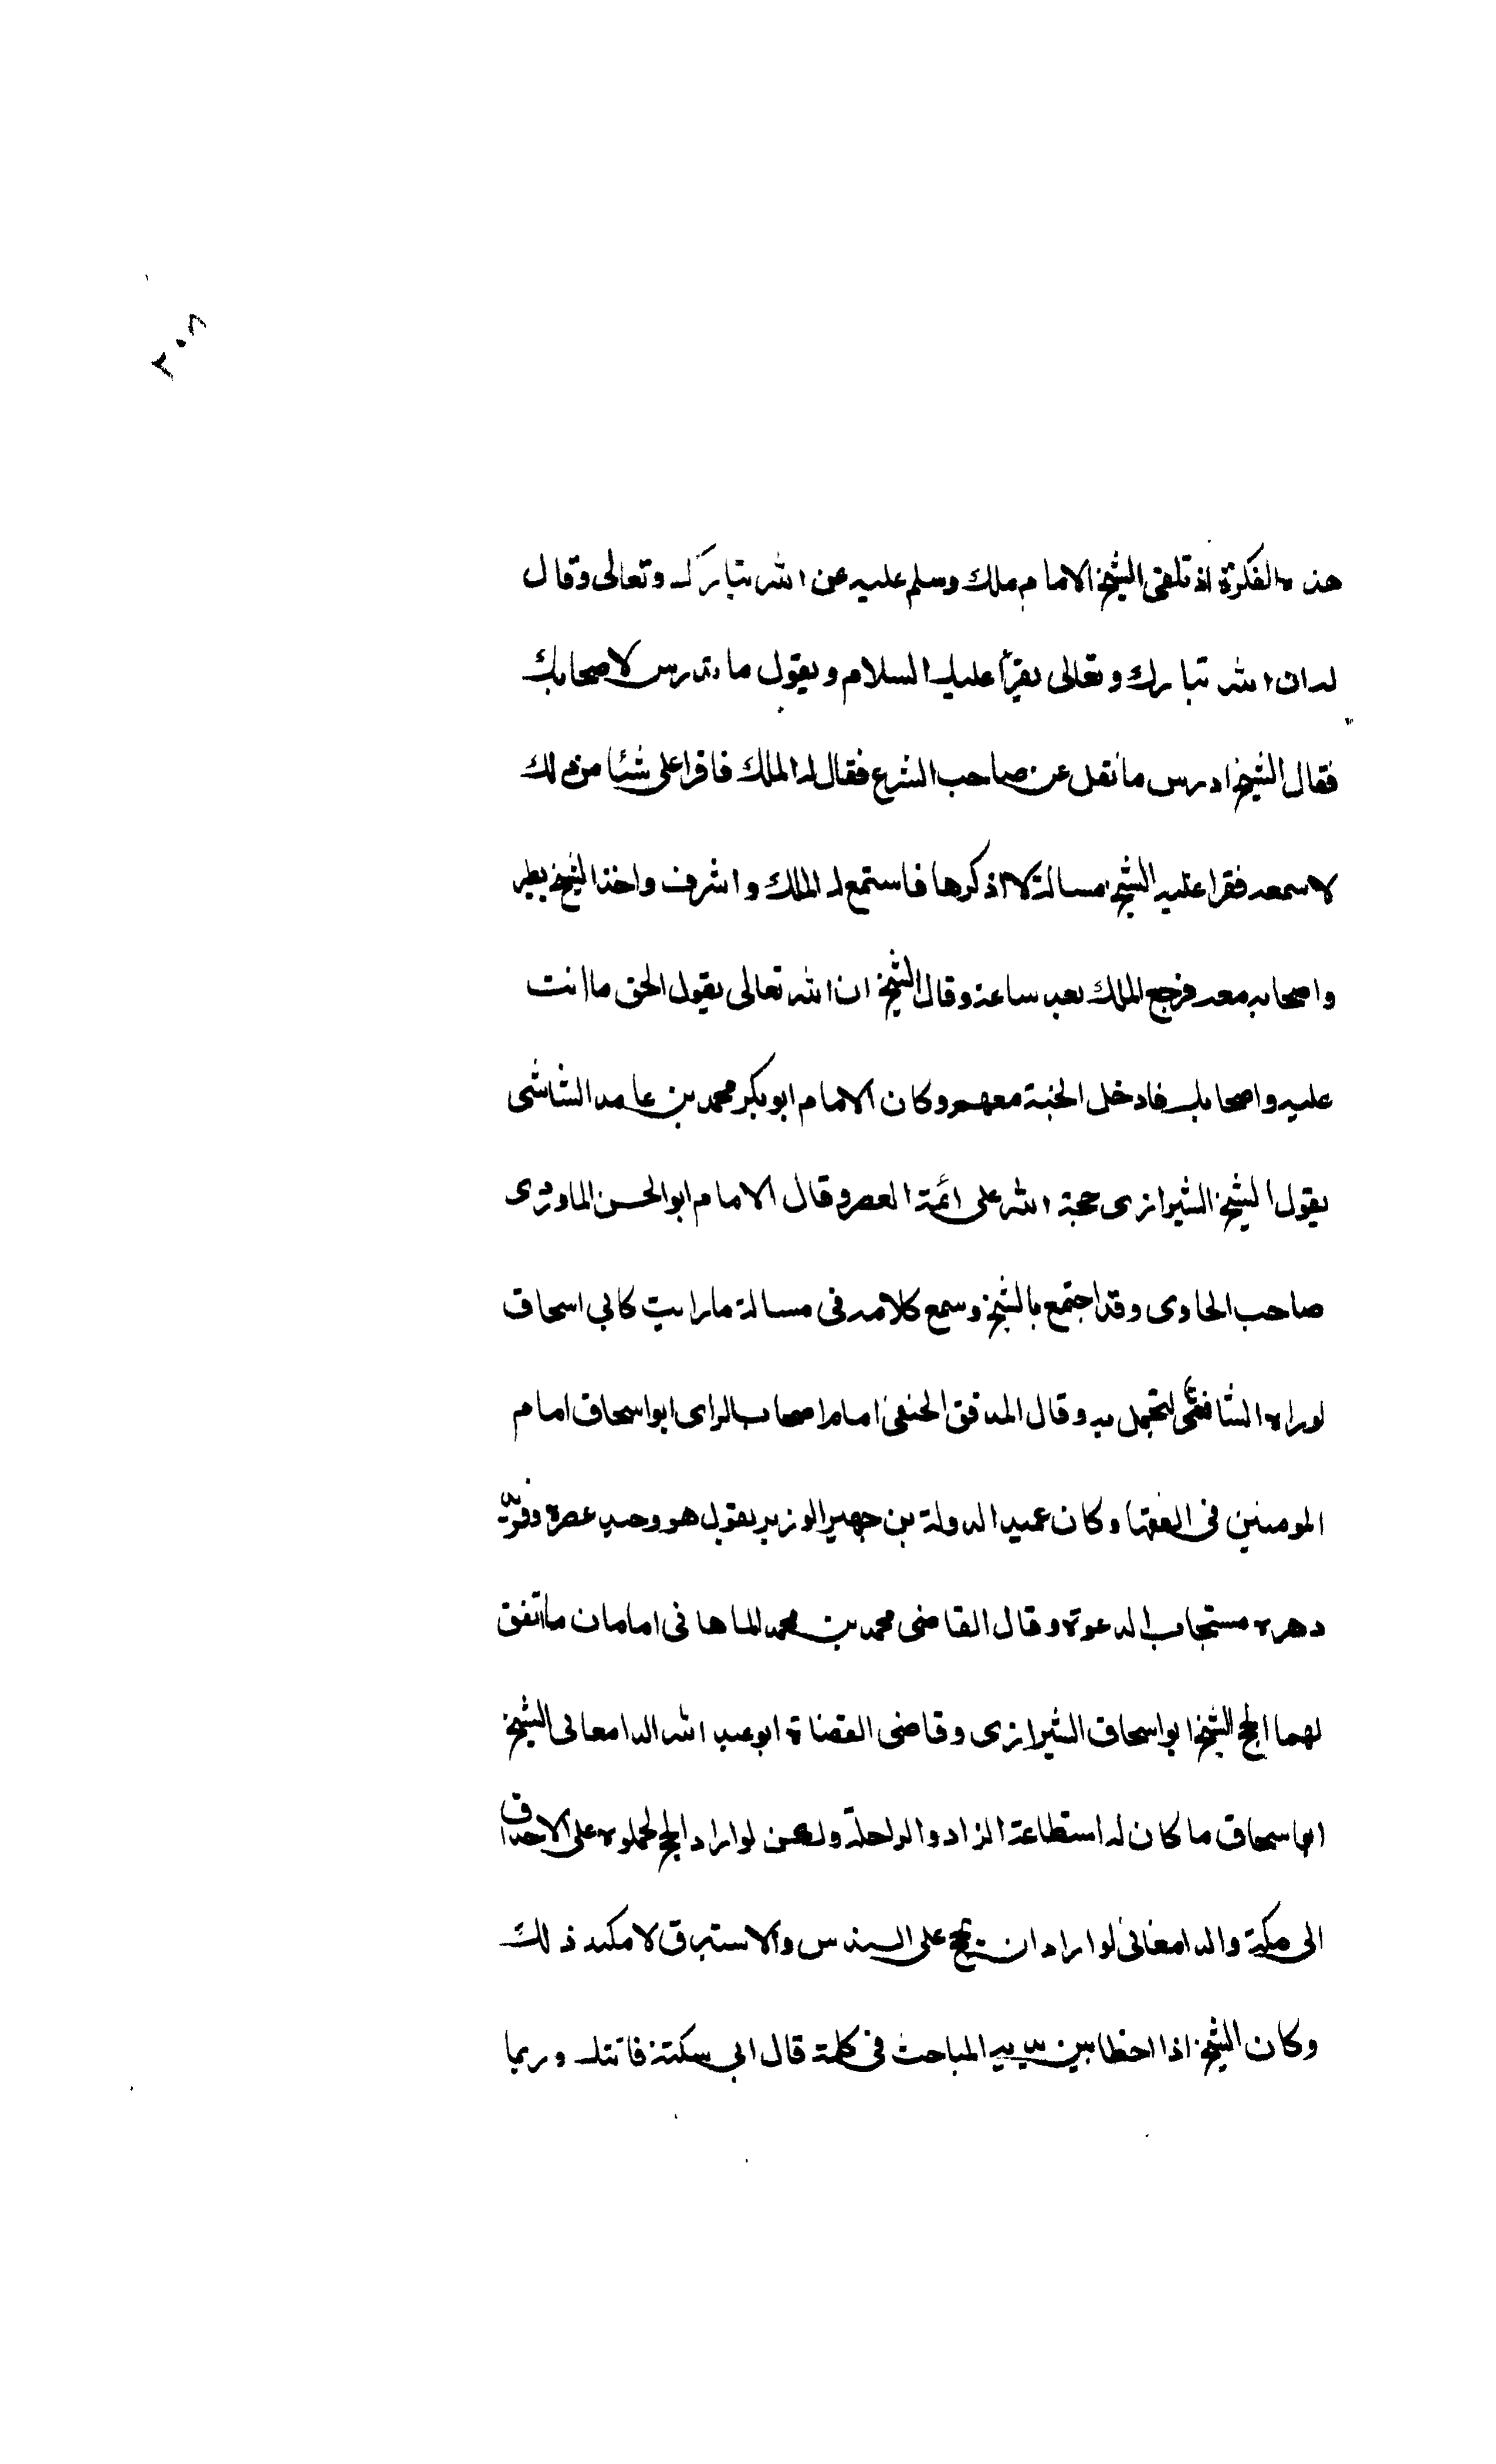 ٢٠٨
هذه الفكرة اذ تلقى الشيخ الامام ملك وسلم عليه عن الله تبارك وتعالى وقال
له ان الله تبارك وتعالى يقرأ عليك السلام ويقول ما تدرس لاصحابك
فقال الشيخ ادرس ما نقل عن صاحب الشرع فقال له الملك فاقرا على شئا من ذلك
لاسمعه فقرا عليه الشيخ مسالة لا اذكرها فاستمع له الملك وانشرف واخذ الشيخ يطير
واصحابه معه فرجع الملك بعد ساعة وقال الشيخ ان الله تعالى يقول الحق ما انت
عليه واصحابك فادخل الجنة معهم وكان الامام ابو بكر محمد بن عامد الشاشى
يقول الشيخ الشيرازى حجة الله على ائمة العصر وقال الامام ابو الحسن الماوردى
صاحب الحاوى وقد اجتمع بالشيخ وسمع كلامه فى مسالة ما رايت كابي اسحاق
لو راه الشافعى لتجمل به وقال المدفق الحنفى امام اصحاب الراى ابو اسحاق امام
المومنين فى الفقها وكان عميد الدولة بن جهير الوزير يقول هو وحيد عصره وفريد
دهره مستجاب الدعوة وقال القاضى محمد بن محمد الماهانى امامان ما اتفق
لهما الحج الشيخ ابو اسحاق الشيرازى وقاضى القضاة ابو عبد الله الدامعانى الشيخ
ابا سحاق ما كان له استطاعة الزاد والراحلة ولكن لو اراد الحج لحملوه على الاحداق
الى مكة والدامغانى لو اراد ان يحج على السندس والاستبرق لامكنه ذلك
وكان الشيخ اذا اخطا بين يديه المباحث فى كلمة قال اي سكتة فاتتك وربما